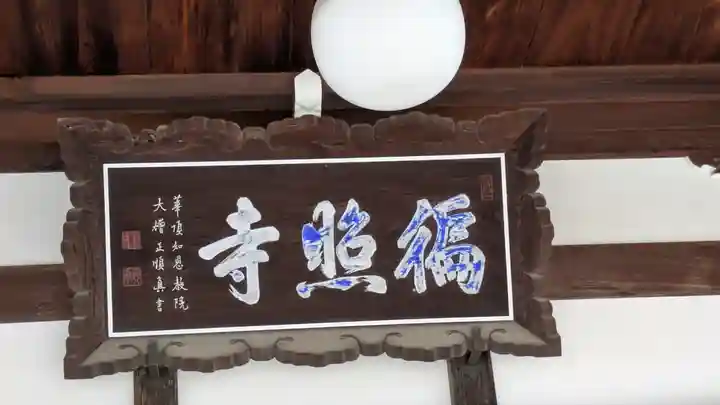 徧照寺
華頂知恩教院
大僧正順真書